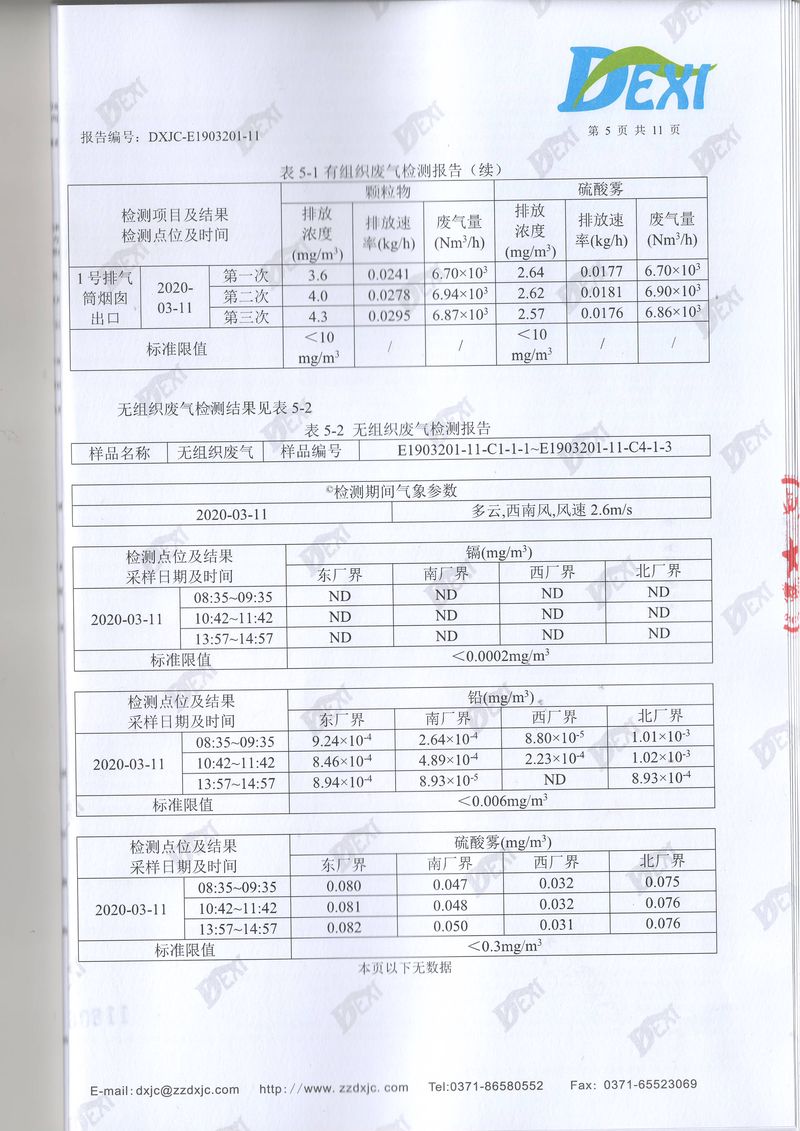 DEXI
报告编号：DXJC-E1903201-11
第 5 页 共 11 页
表 5-1 有组织废气检测报告（续）
检测项目及结果 检测点位及时间 颗粒物 硫酸雾
排放浓度(mg/m³) 排放速率(kg/h) 废气量(Nm³/h) 排放浓度(mg/m³) 排放速率(kg/h) 废气量(Nm³/h)
1 号排气筒烟囱出口 2020-03-11 第一次 3.6 0.0241 6.70×10³ 2.64 0.0177 6.70×10³
第二次 4.0 0.0278 6.94×10³ 2.62 0.0181 6.90×10³
第三次 4.3 0.0295 6.87×10³ 2.57 0.0176 6.86×10³
标准限值 ＜10 mg/m³ / / ＜10 mg/m³ / /
无组织废气检测结果见表 5-2
表 5-2 无组织废气检测报告
样品名称 无组织废气 样品编号 E1903201-11-C1-1-1~E1903201-11-C4-1-3
检测期间气象参数
2020-03-11 多云,西南风,风速 2.6m/s
检测点位及结果 采样日期及时间 镉(mg/m³)
东厂界 南厂界 西厂界 北厂界
2020-03-11 08:35~09:35 ND ND ND ND
10:42~11:42 ND ND ND ND
13:57~14:57 ND ND ND ND
标准限值 ＜0.0002mg/m³
检测点位及结果 采样日期及时间 铅(mg/m³)
东厂界 南厂界 西厂界 北厂界
2020-03-11 08:35~09:35 9.24×10⁻⁴ 2.64×10⁻⁴ 8.80×10⁻⁵ 1.01×10⁻³
10:42~11:42 8.46×10⁻⁴ 4.89×10⁻⁴ 2.23×10⁻⁴ 1.02×10⁻³
13:57~14:57 8.94×10⁻⁴ 8.93×10⁻⁵ ND 8.93×10⁻⁴
标准限值 ＜0.006mg/m³
检测点位及结果 采样日期及时间 硫酸雾(mg/m³)
东厂界 南厂界 西厂界 北厂界
2020-03-11 08:35~09:35 0.080 0.047 0.032 0.075
10:42~11:42 0.081 0.048 0.032 0.076
13:57~14:57 0.082 0.050 0.031 0.076
标准限值 ＜0.3mg/m³
本页以下无数据
E-mail:dxjc@zzdxjc.com http://www.zzdxjc.com Tel:0371-86580552 Fax: 0371-65523069